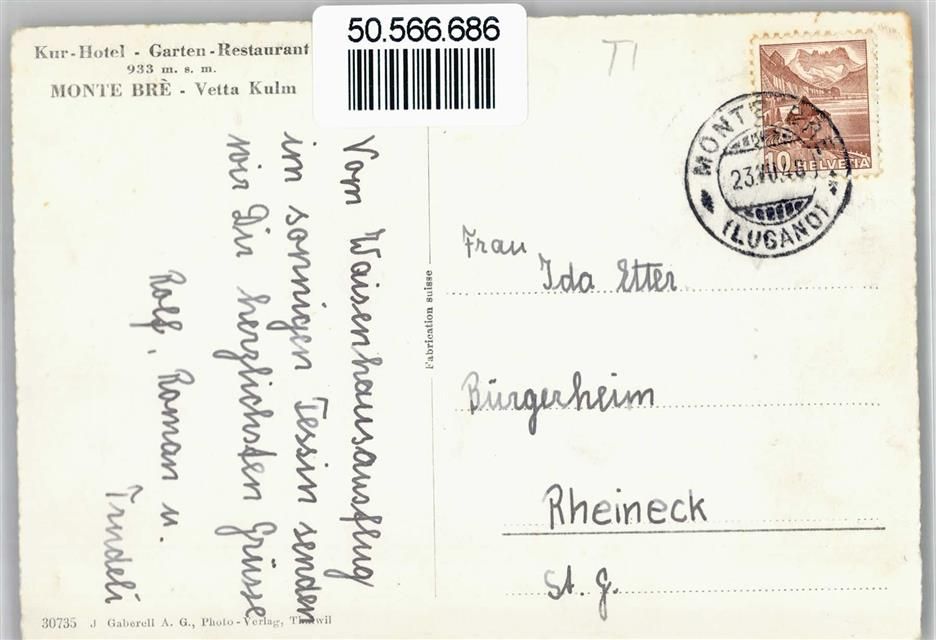 50.566.686
Kur-Hotel - Garten-Restaurant
933 m. s. m.
MONTE BRÈ - Vetta Kulm
TI
Vom Waisenhausausflug
im sonnigen Tessin senden
wir Dir herzlichsten Grüsse
Rolf, Roman u.
Trudeli
Fabrication suisse
10 HELVETIA
MONTE BRÈ
(LUGANO)
Frau
Ida Etter
Bürgerheim
Rheineck
St. G.
30735 J Gaberell A. G., Photo-Verlag,